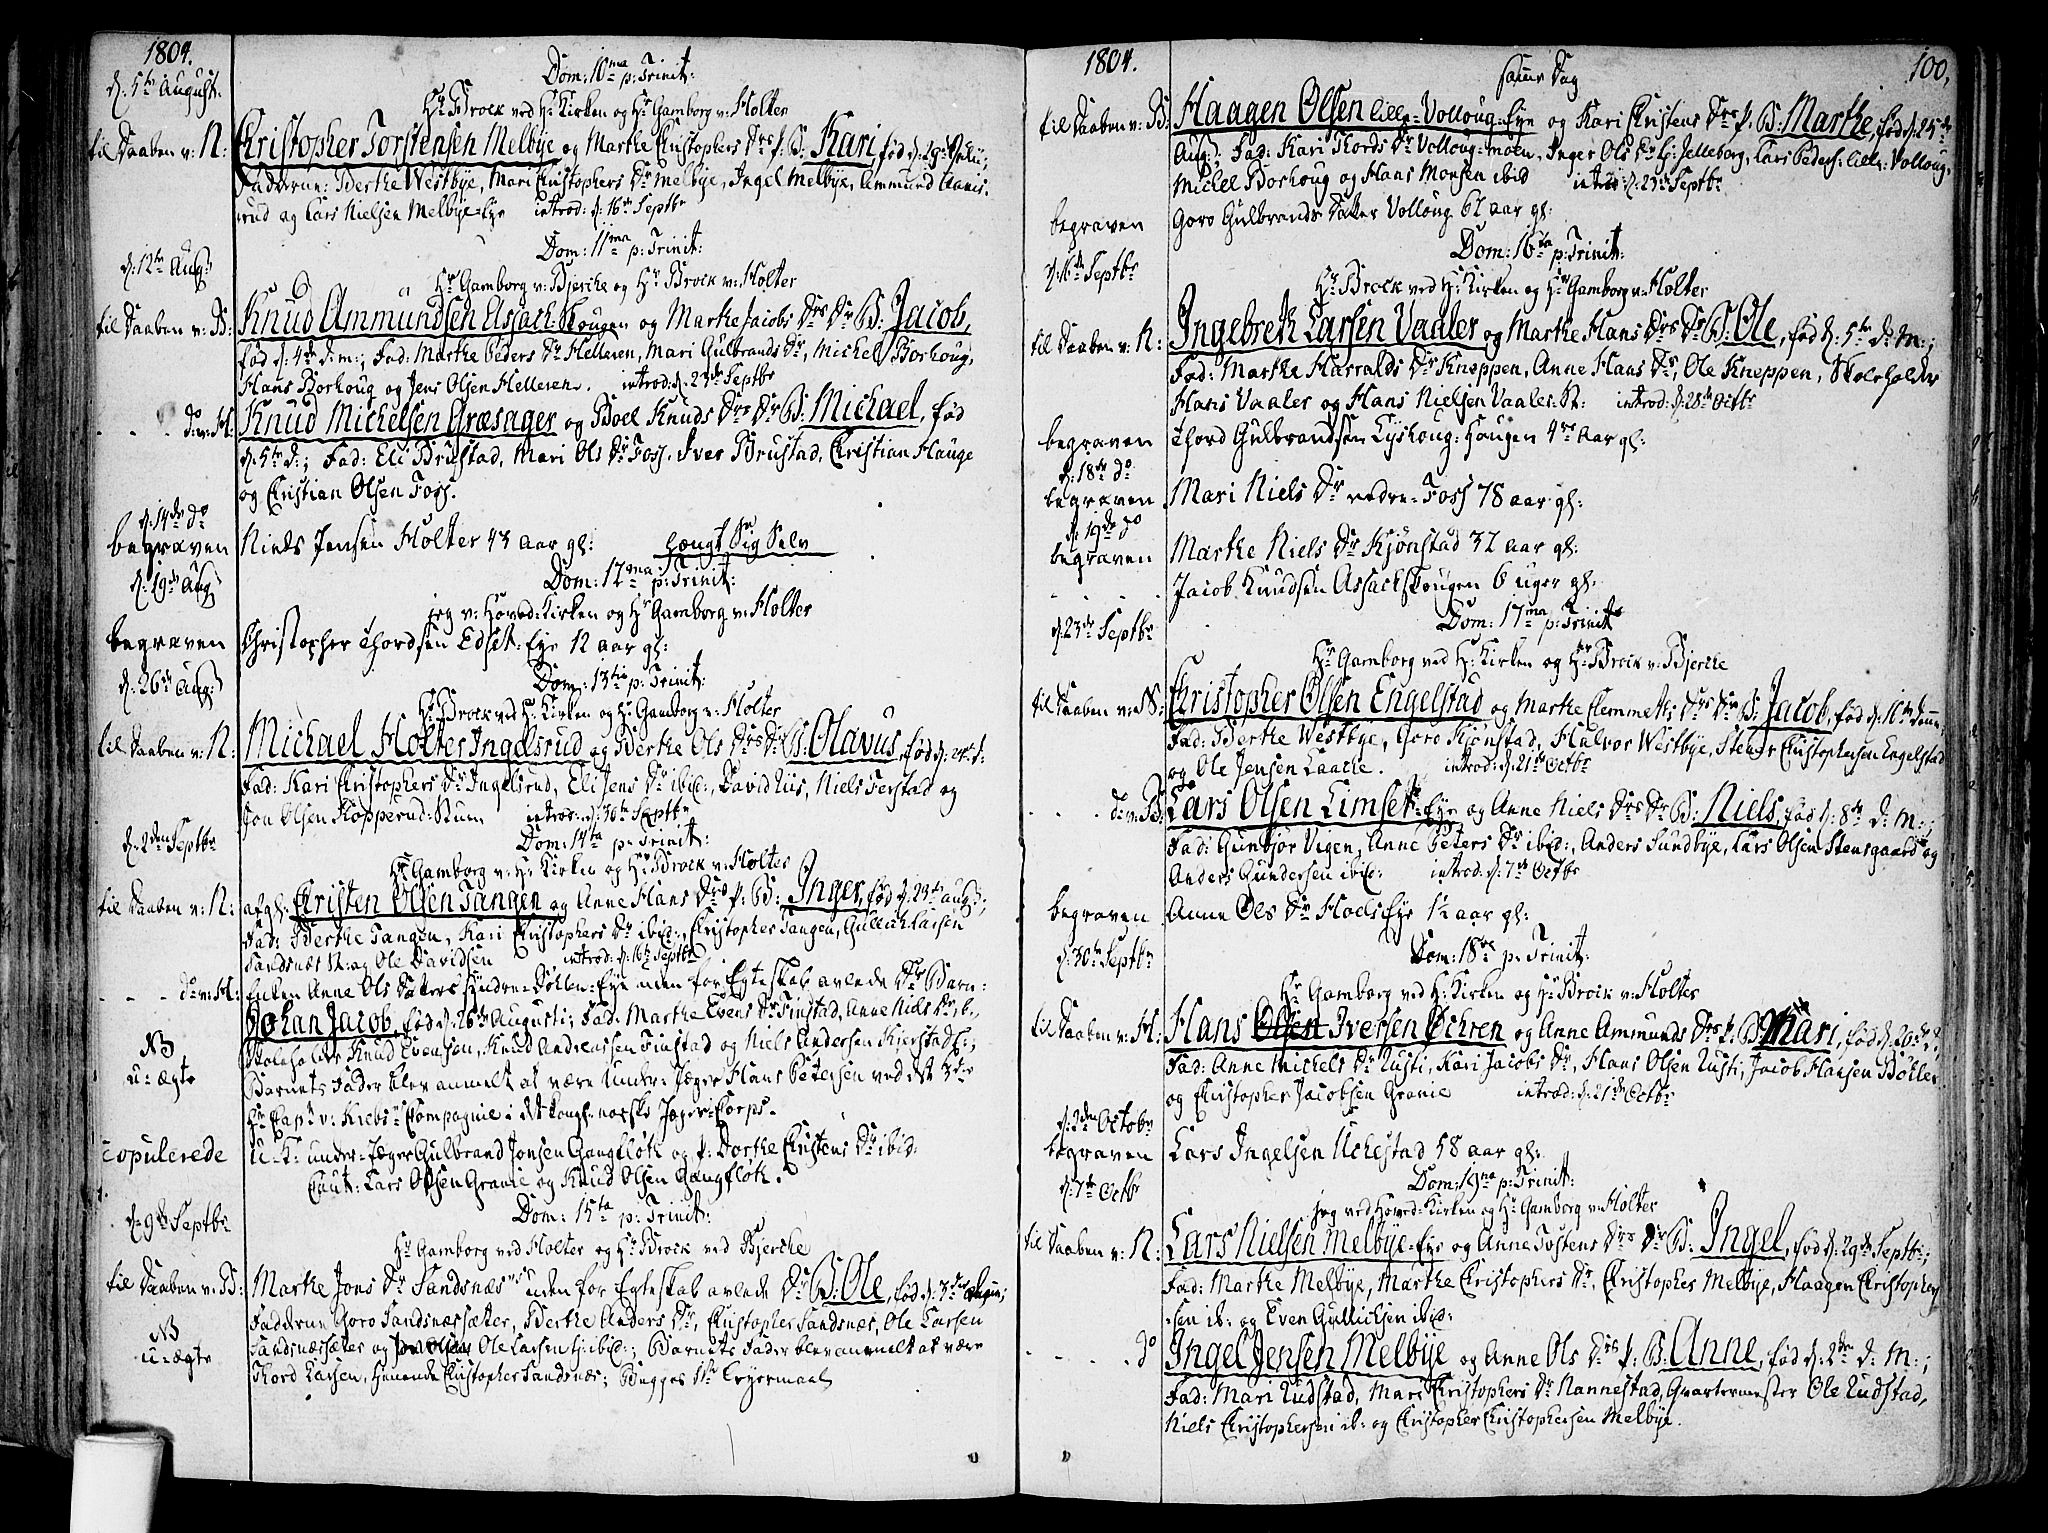 1804.
d: 5te August:
Dom: 10ma p: Trinit:
Hr Brock ved H: Kirken og Hr Gamborg v: Holter
til Daaben v: N: Christopher Torstensen Melbye og Marthe Christophers Drs p: B: Kari, fød d: 29de
Fadderne: Berthe Westbye, Mari Christophers Dr Melbye, Ingel Melbye, Ammund
rud og Lars Nielsen Melbye-Eye introd: d: 16de Septbr
Dom: 11ma p: Trinit:
d: 12te Aug:
Hr Gamborg v: Bjerche og Hr Brock v: Holter
til Daaben v: B: Knud Ammundsen Assach-Skougen og Marthe Jacobs Drs Dr B: Jacob,
fød d: 4de d: m:; Fad: Marthe Peders Dr Helleren, Mari Gulbrands Dr, Michel Borhoug,
Hans Borhoug og Jens Olsen Helleren. introd: d: 23de Septbr
- - - do v: H: Knud Michelsen Græsager og Boel Knuds Drs Dr B: Michael, fød
d: 5te d:; Fad: Eli Brustad, Mari Ols Dr Foss, Iver Brustad, Christian Hauge
og Christian Olsen Foss.
d: 14de do
begraven Niels Jensen Holter 43 aar gl: hængt Sig Selv
d: 19de Aug:
Dom: 12ma p: Trinit:
jeg v: Hoved-Kirken og Hr Gamborg v: Holter
begraven Christopher Thordsen Edset-Eye 12 aar gl:
d: 26de Aug:
Dom: 13tia p: Trinit:
Hr Brock ved H: Kirken og Hr Gamborg v: Holter
til Daaben v: N: Michael Holter Ingelsrud og Berthe Ols Drs Dr B: Olavus, fød d:
Fad: Kari Christophers Dr Ingelsrud, Eli Jens Dr ibid:, David Liis, Niels Ferstad og
Jon Olsen Kopperud-Stum introd: d: 30te Septbr
d: 2den Septbr
Dom: 14ta p: Trinit:
Hr Gamborg v: H: Kirken og Hr Brock v: Holter
til Daaben v: N: afgl: Christen Olsen Tangen og Anne Hans Drs p: B: Inger, fød d: 23de aug:;
Fad: Berthe Tangen, Kari Christophers Dr ibid:, Christopher Tangen, Gullich Larsen
Sandsnæs St: og Ole Davidsen introd: d: 16de Septbr
- - - do v: H: Enken Anne Ols Datters Hyndre-Døhlen-Eye uden for Egteskab avlede Dr Barn:
Johan Jacob, fød d: 26de Augusti; Fad: Marthe Evens Dr Finstad, Anne Niels Dr ib:,
NB Skoleholder Knud Evensen, Knud Andreassen Finstad og Niels Andersen Kjerstad:;
u-ægte Barnets Fader blev anmelt at være Under-Jæger Hans Petersen ved det 3die
Hr Capt: v: Krebs's Compagnie i det kongl: norske Jæger-Corps.
copulerede U. K: under-Jæger Gulbrand Jonsen Gangfløt og p: Dorthe Christens Dr ibid:
Caut: Lars Olsen Granie og Knud Olsen Gangfløt.
Dom: 15ta p: Trinit:
d: 9de Septbr
Hr Gamborg ved Holter og Hr Brock ved Bjerche
til Daaben v: B: Marthe Jons Dr Sandsnæs's uden for Egteskab avlede Dr B: Ole, fød d: 3die
Fadderne Goro Sandsnæssæter, Berthe Anders Dr, Christopher Sandsnæs, Ole Larsen
NB Sandsnæssæter og Ole Larsen tj: ibid:; Barnets Fader blev anmelt at være
u-ægte Thord Larsen, Christopher Sandsnæs; Bygges Nr Leyermaal
1804.
samme Dag
100.
til Daaben v: B: Haagen Olsen lille-Volloug-Eye og Kari Christens Drs p: B: Marthe, fød d: 25de
Aug:; Fad: Kari Thords Dr Volloug-moen, Inger Ols Dr tj: Jelleborg, Lars Peders: lille-Volloug,
Michel Borhoug og Hans Monsen ibid introd: d: 23de Septbr
begraven Goro Gulbrands Datter Volloug 62 aar gl:
Dom: 16ta p: Trinit:
d: 16de Septbr
Hr Brock ved H: Kirken og Hr Gamborg v: Holter
til Daaben v: N: Ingebreth Larsen Vaaler og Marthe Hans Drs Dr B: Ole, fød d: 5te d: m:;
Fad: Marthe Harralds Dr Kneppen, Anne Hans Dr, Ole Kneppen, Skoleholder
Hans Vaaler og Hans Nielsen Vaaler St: introd: d: 28de Octbr
begraven Thord Gulbrandsen Lyshoug-Haugen 4re Aar gl:
d: 18de do
begraven Mari Niels Dr nedre-Foss 78 aar gl:
d: 19de do
begraven Marthe Niels Dr Kjønstad 32 aar gl:
- - - Jacob Knudsen Assachskougen 6 uger gl:
Dom: 17ma p: Trinit
d: 23de Septbr
Hr Gamborg ved H: Kirken og Hr Brock v: Bjerche
til Daaben v: N: Christopher Olsen Engelstad og Marthe Clemmets Drs Dr B: Jacob, fød d: 16de
Fad: Berthe Westbye, Goro Kjønstad, Halvor Westbye, Stener Christophersen Engelstad
og Ole Jensen Laache. introd: d: 21de Octbr
- - - do v: B: Lars Olsen Limset-Eye og Anne Niels Drs Dr B: Niels, fød d: 8de d: m:;
Fad: Gunbjør Vigen, Anne Peters Dr ibid:, Anders Sundbye, Lars Olsen Stensgaard og
Anders Gundersen ibid: introd: d: 7de Octbr
begraven Anne Ols Dr Hoels Eye 1½ aar gl:
d: 30te Septbr
Dom: 18va p: Trinit:
Hr Gamborg ved H: Kirken og Hr Brock v: Holter
til Daaben v: H: Hans Olsen Iversen Ochren og Anne Ammunds Drs p: B: Mari, fød d: 20de d:
Fad: Anne Michels Dr Rusti, Kari Jacobs Dr, Hans Olsen Rusti, Jacob Hansen Bøhler
og Christopher Jacobsen Granie introd: d: 21de Octbr
d: 2den Octobr
begraven Lars Ingelsen Uchestad 58 aar gl:
d: 7de Octbr
Dom: 19na p: Trinit:
jeg ved Hoved-Kirken og Hr Gamborg v: Holter
til Daaben v: N: Lars Nielsen Melbye-Eye og Anne Tostens Drs Dr B: Ingel, fød d: 29de Septbr;
Fad: Marthe Melbye, Marthe Christophers Dr, Christopher Melbye, Haagen Christopher-
sen ib: og Even Gullichsen ibid:
- - - do Ingel Jensen Melbye og Anne Ols Drs p: B: Anne, fød d: 2den d: m:;
Fad: Mari Rudstad, Mari Christophers Dr Nannestad, Qvartermester Ole Rudstad,
Niels Christophersen ib: og Christopher Christophersen Melbye.